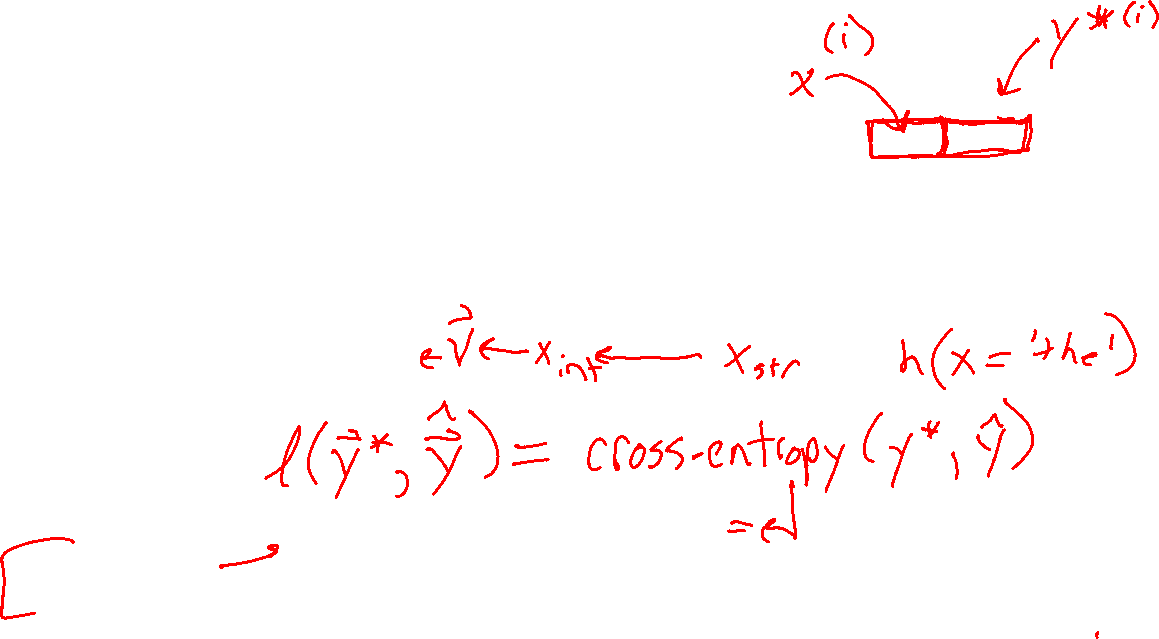 x^(i) y*^(i)
v⃗ ← x_int ← x_str h(x = 'the')
l(y⃗*, ŷ⃗) = cross-entropy(y*, ŷ)
=